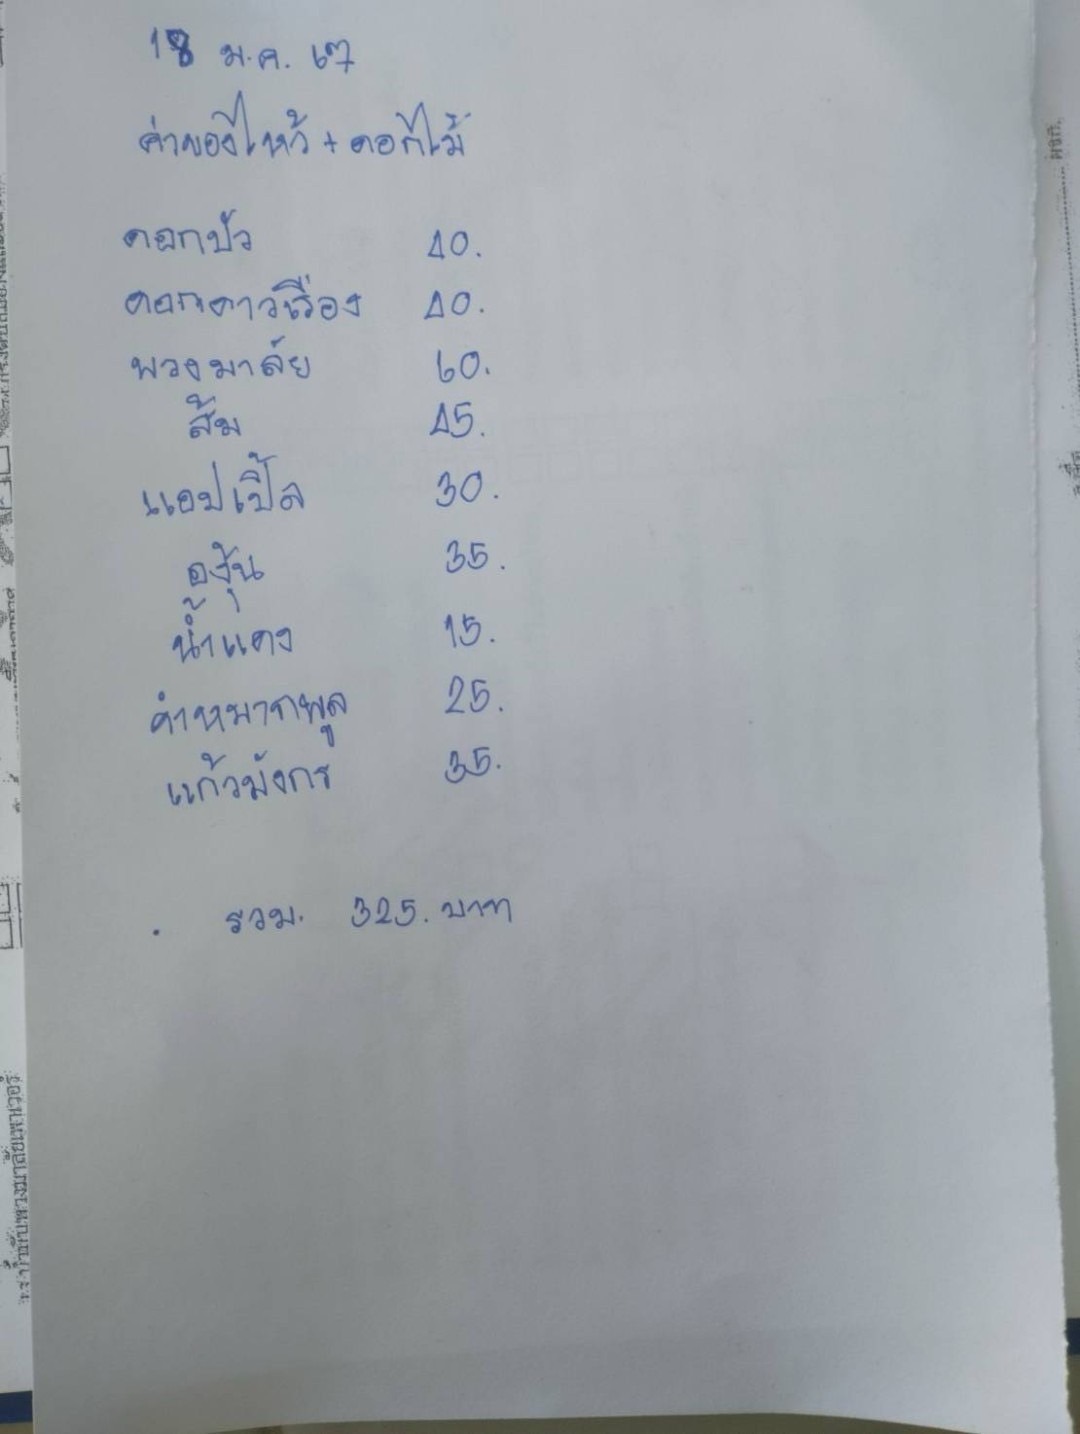 18 ม.ค. 67
ค่าของไหว้ + ดอกไม้
ดอกบัว 40.
ดอกดาวเรือง 40.
พวงมาลัย 60.
ส้ม 45.
แอปเปิ้ล 30.
องุ้น 35.
น้ำแดง 15.
คำหมากพูล 25.
แก้วมังกร 35.
. รวม. 325. บาท